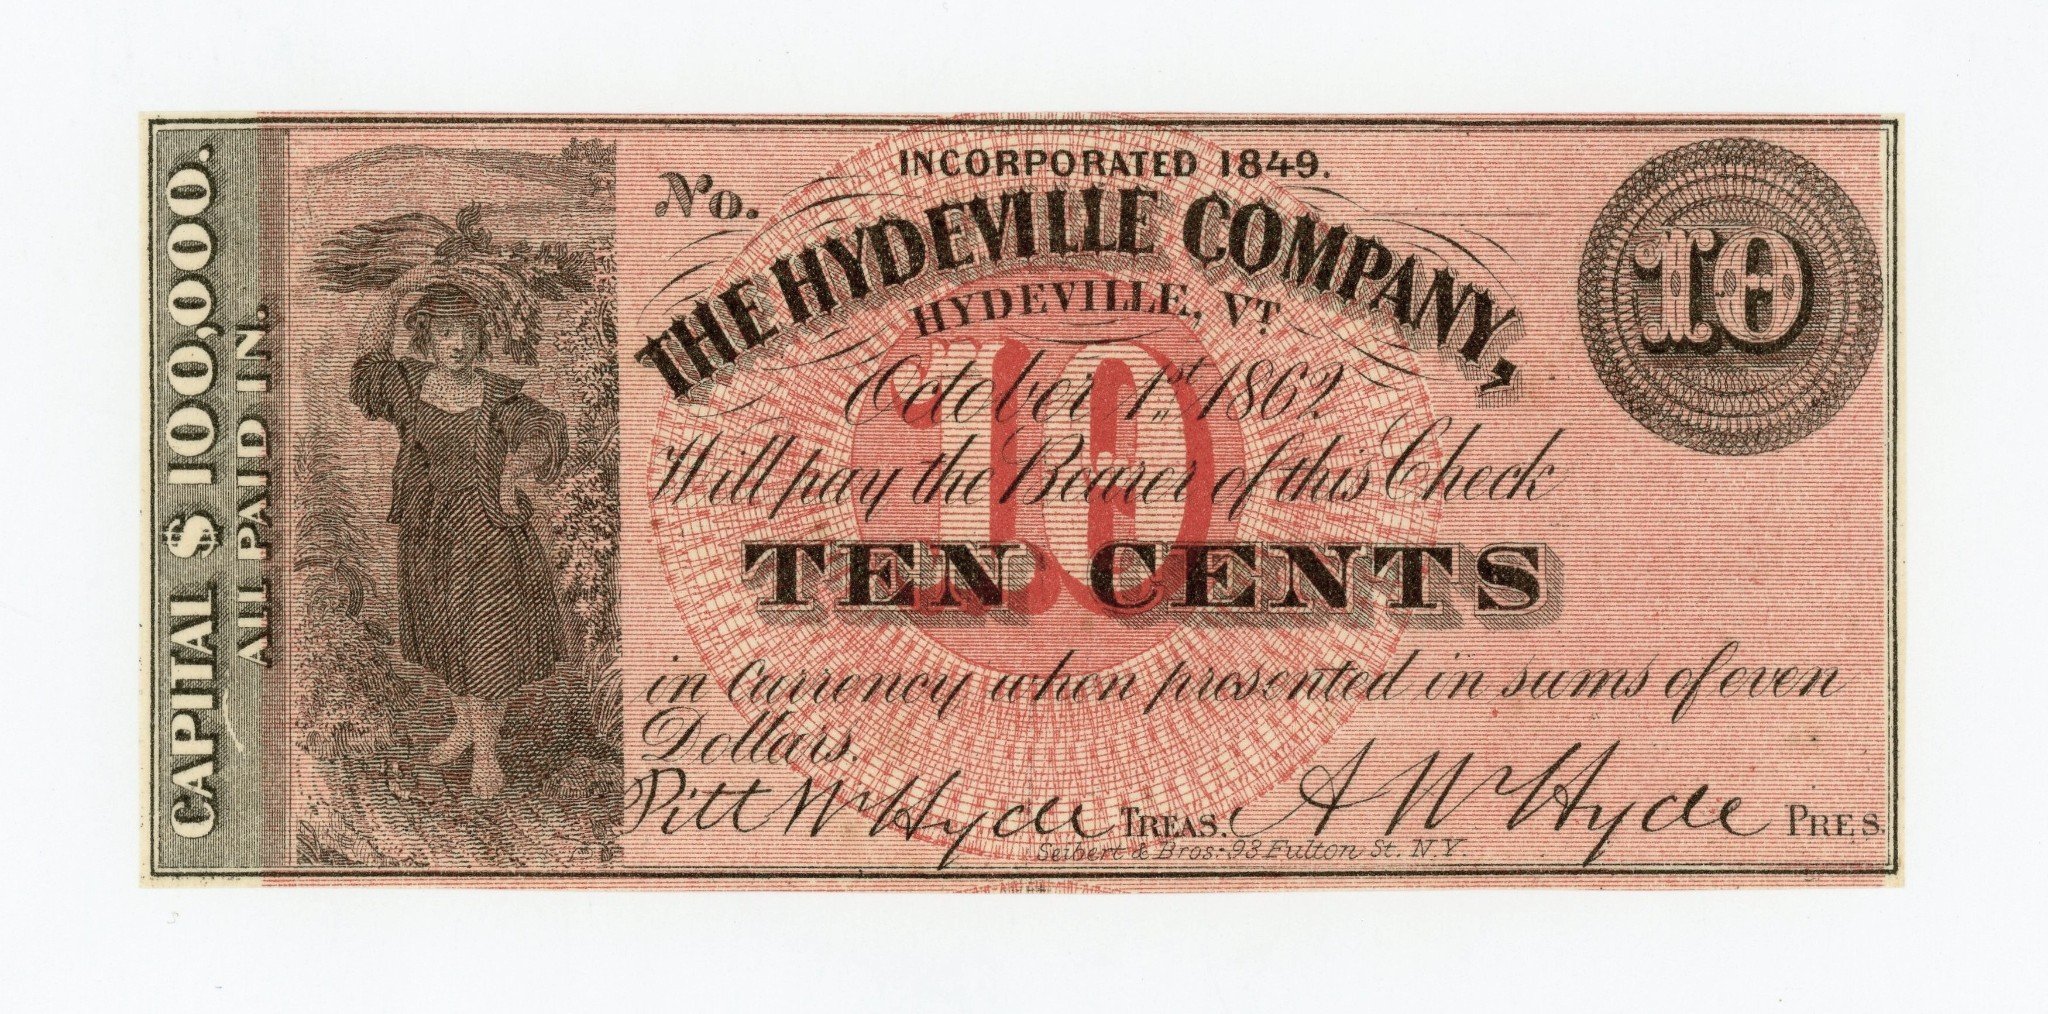 CAPITAL $ 100,000.
ALL PAID IN.
No.
INCORPORATED 1849.
THE HYDEVILLE COMPANY,
HYDEVILLE, VT.
10
October 1st 1862.
10
Will pay the Bearer of this Check
TEN CENTS
in Currency when presented in sums of even
Dollars.
Pitt W Hyde TREAS. A W Hyde PRES.
Seibert & Bros. 93 Fulton St. N.Y.